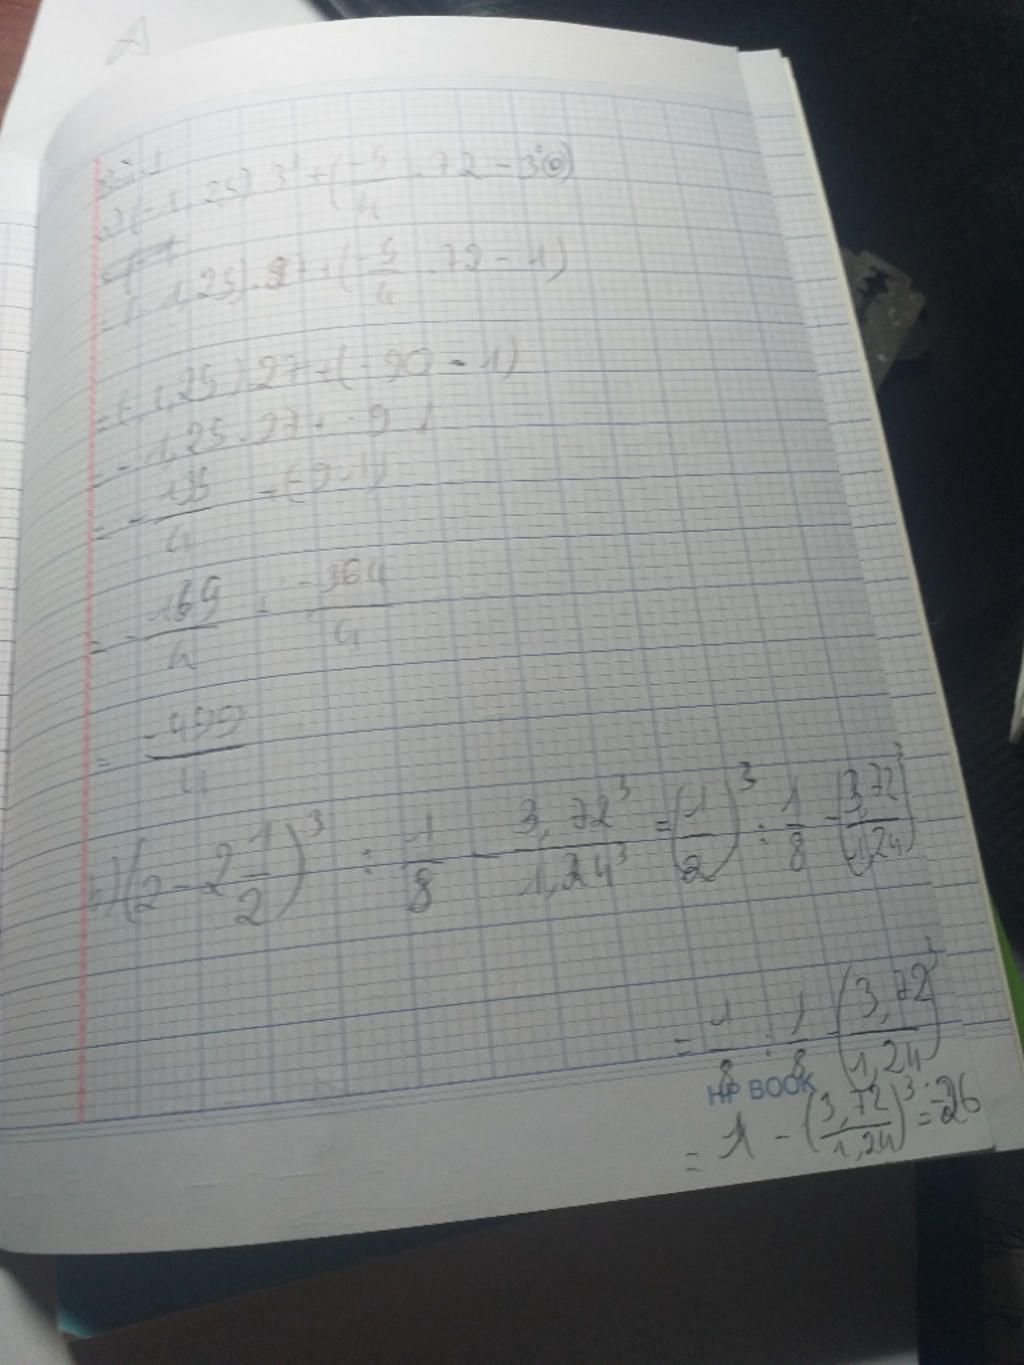 A
Bài 1
a) (-1,25).3³+(-5/4 .72-3⁰)
=(-1,25).27+(-5/4 .72-1)
=(-1,25).27+(-90-1)
=-1,25.27+-91
=-135/4 +(-91)
-364/4
=-499/4
b)(2-2 1/2)³ : 1/8 - 3,72³/1,24³ =(1/2)³ : 1/8 -(3,72/1,24)³
= 1/8 : 1/8 (3,72/1,24)³
HP BOOK
= 1 - (3,72/1,24)³ =-26